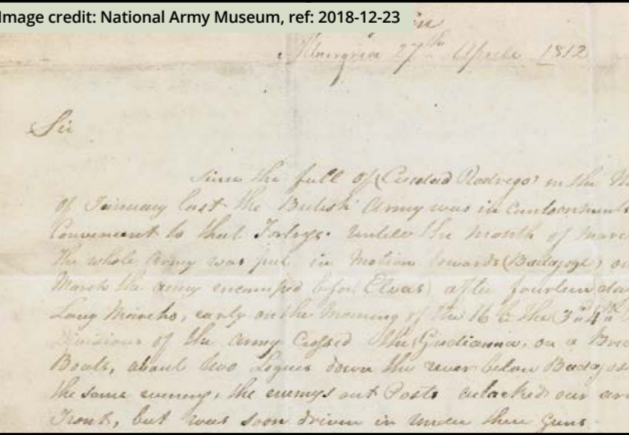 Image credit: National Army Museum, ref: 2018-12-23
27th Aprile 1812
Sir
Since the fall of Ciudad Rodrigo in the
of Jenuary last the British Army was in cantoonments
Convenient to that Fortress. untill the month of marc
the whole Army was put in Motion towards Badajoz, o
March the army encamped before Elvas, after fourteen da
Long Marches, early on the Morning of the 16th the 3rd 4th
Divisions of the Army Crossed the Guidianna, on a Br
Boats, about two Legues down the rever below Badajos
the same evening, the enemys out Posts atacked our
Front, but was soon driven in under there Guns.